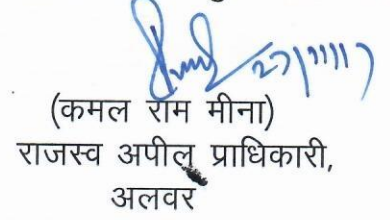 27/11/17
(कमल राम मीना)
राजस्व अपील प्राधिकारी,
अलवर